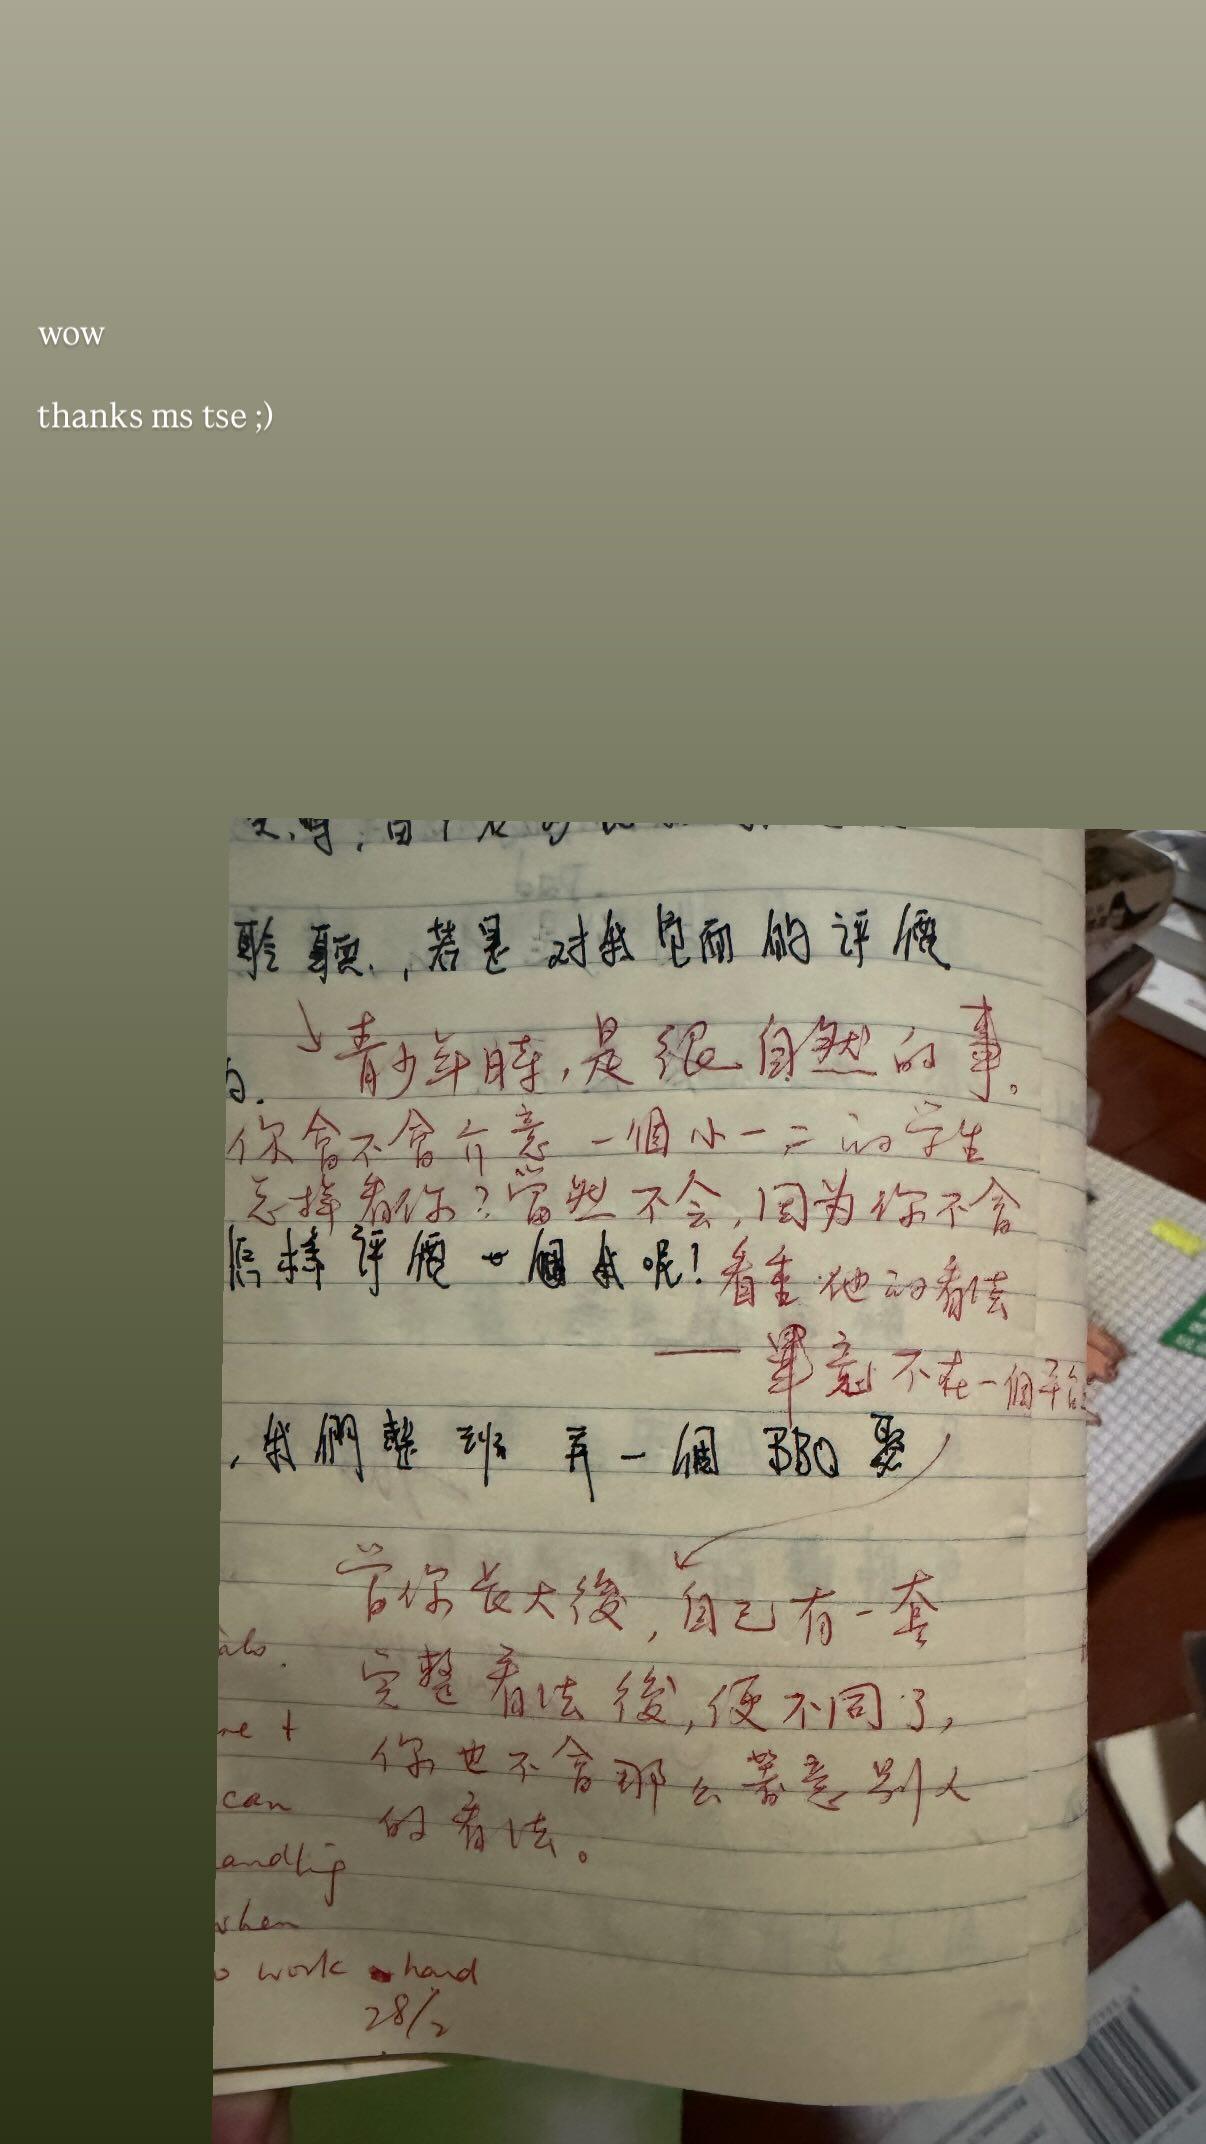 wow
thanks ms tse ;)
聆聽，若是對我[正]面的評價
青少年時，是很自然的事。
你會不會介意一個小一、二的学生
怎樣看你？當然不会，因为你不會
樣評價一個我呢！
看重他的看法
——畢竟不在一個平台
，我們整班弄一個BBQ聚
當你長大後，自己有一套
完整看法後，便不同了，
你也不會那么著意別人
的看法。
can
when
work hard
28/2